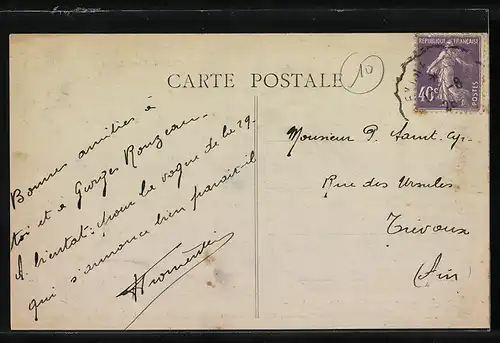 CARTE POSTALE
10
REPUBLIQUE FRANÇAISE
40c
POSTES
Bonnes amitiés à
toi et à Georges Rouzeau.
A bientôt: pour la vogue de la 29.
qui s'annonce bien paraît-il
Monsieur P. Saint-Cyr-
Rue des Ursules
Trévoux
(Ain)